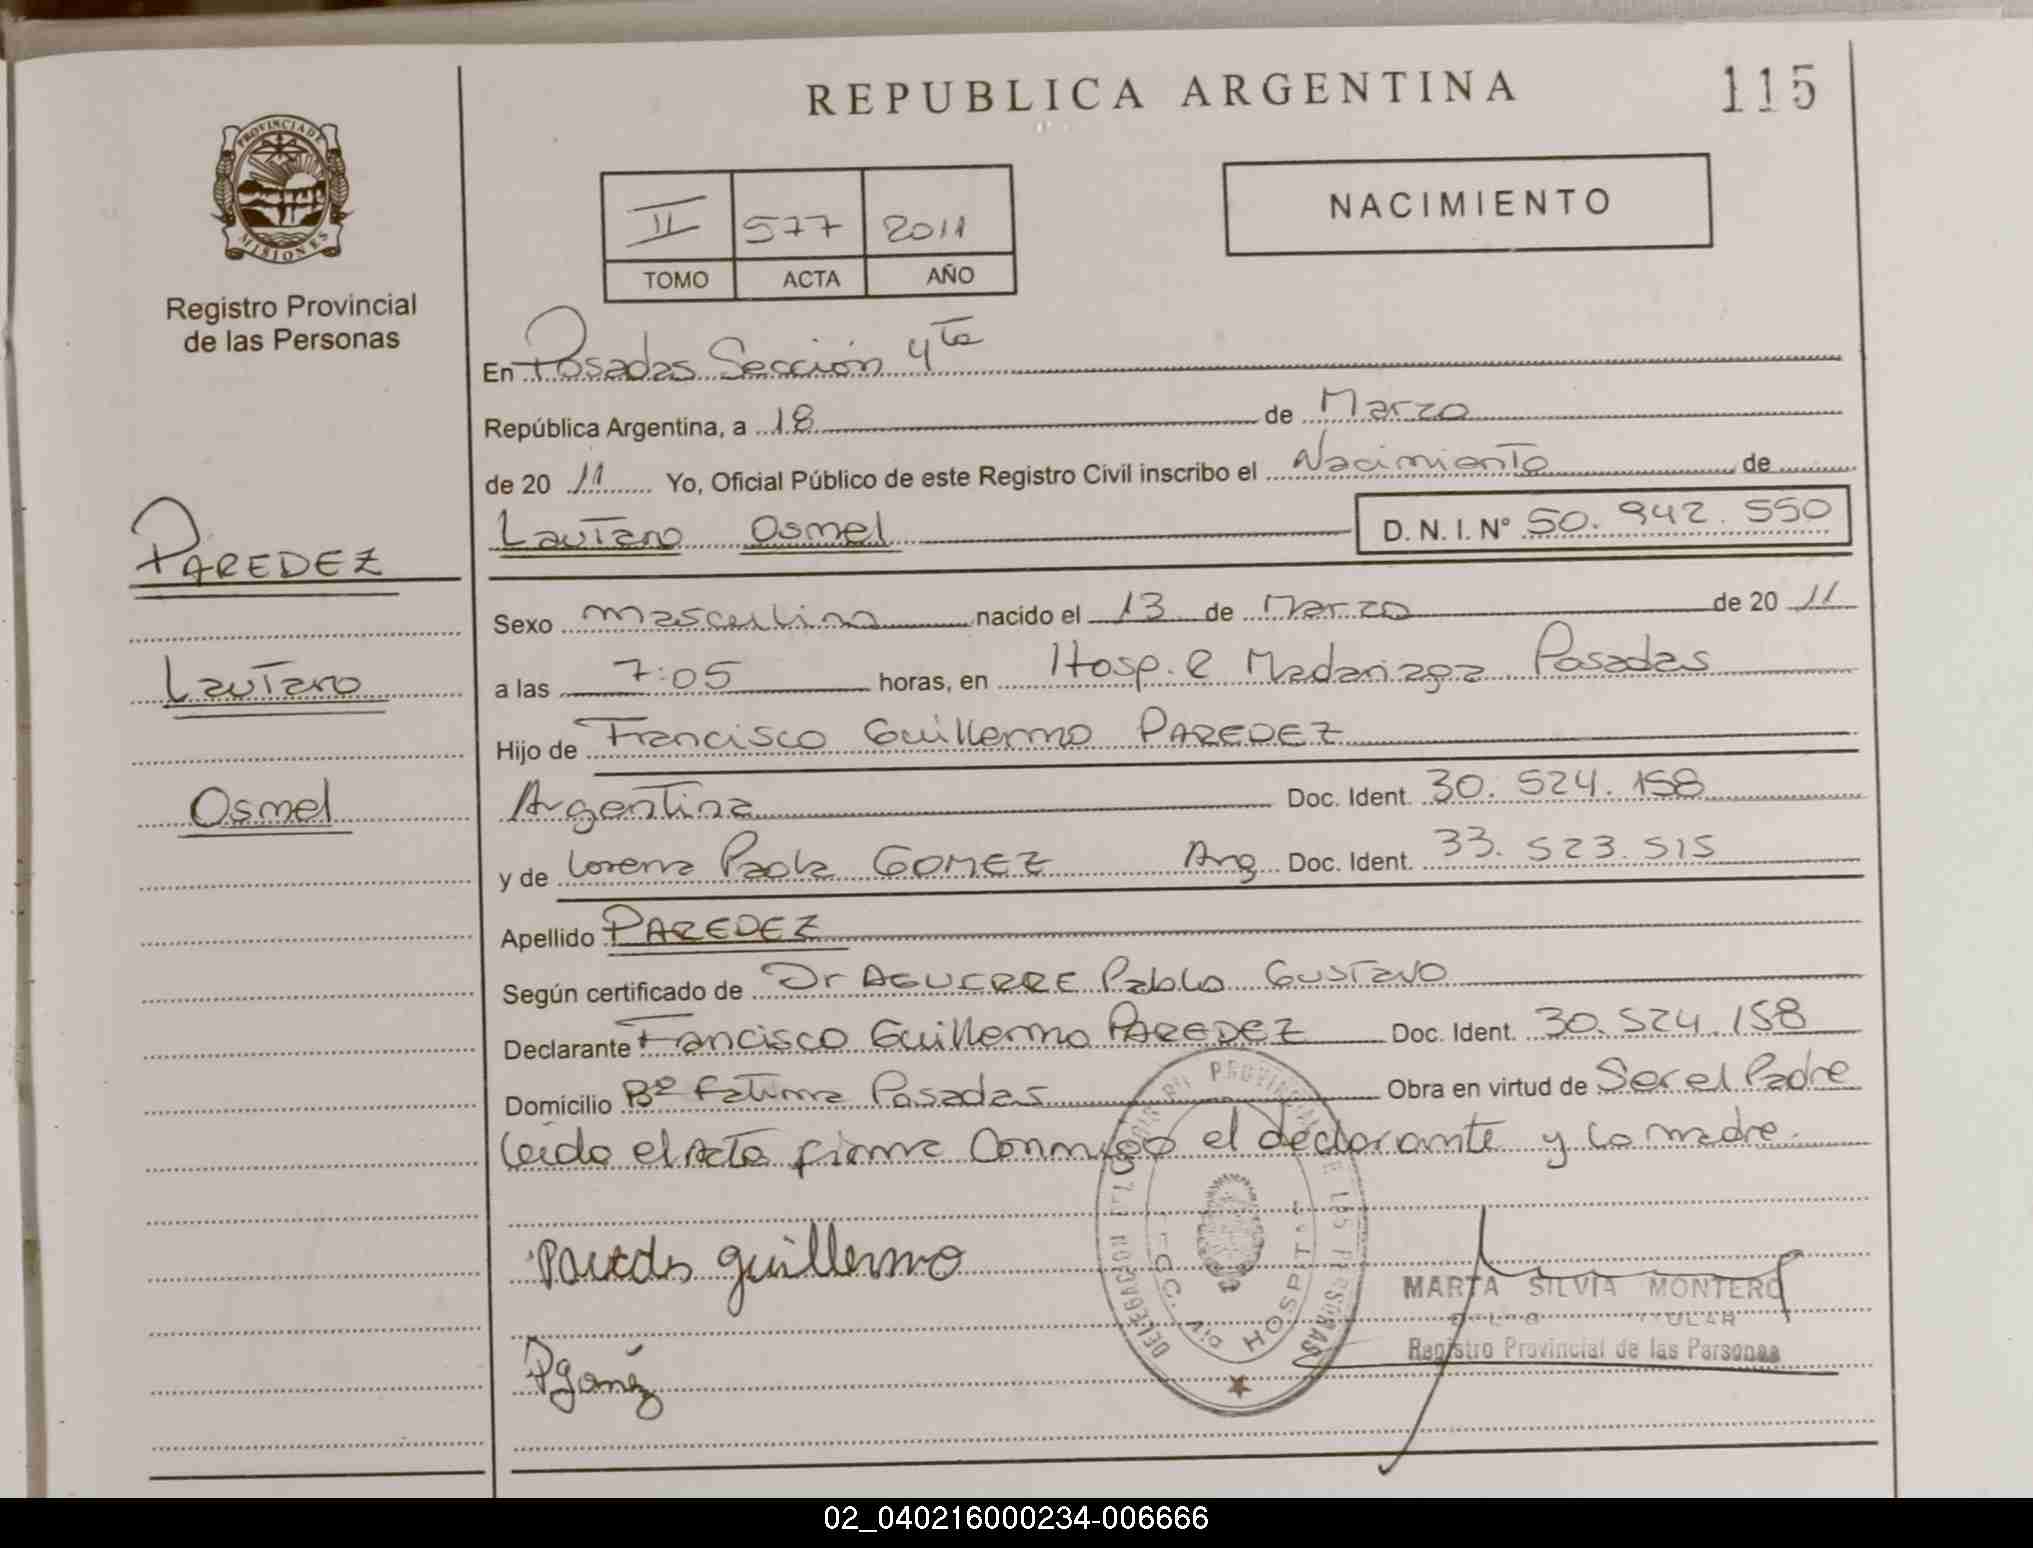 REPUBLICA ARGENTINA
115
PROVINCIA DE
MISIONES
Registro Provincial
de las Personas
II 577 2011
TOMO ACTA AÑO
NACIMIENTO
En Posadas Sección 4ta
República Argentina, a 18 de Marzo
de 20 11 Yo, Oficial Público de este Registro Civil inscribo el Nacimiento de
Lautaro Osmel D. N. I. N° 50.942.550
PAREDEZ
Lautaro
Osmel
Sexo masculino nacido el 13 de Marzo de 20 11
a las 7:05 horas, en Hosp. R Madariaga Posadas
Hijo de Francisco Guillermo PAREDEZ
Argentina Doc. Ident. 30.524.158
y de Lorena Paola GOMEZ Arg Doc. Ident. 33.523.515
Apellido PAREDEZ
Según certificado de Dr AGUERRE Pablo Gustavo
Declarante Francisco Guillermo PAREDEZ Doc. Ident. 30.524.158
Domicilio Bº Fatima Posadas Obra en virtud de Ser el Padre
leido el Acta firma Conmigo el declarante y la madre.
Paredes guillermo
P Gómez
PROVINCIAL DE LAS PERSONAS
HOSPITAL
MARTA SILVIA MONTERO
Registro Provincial de las Personas
02_040216000234-006666